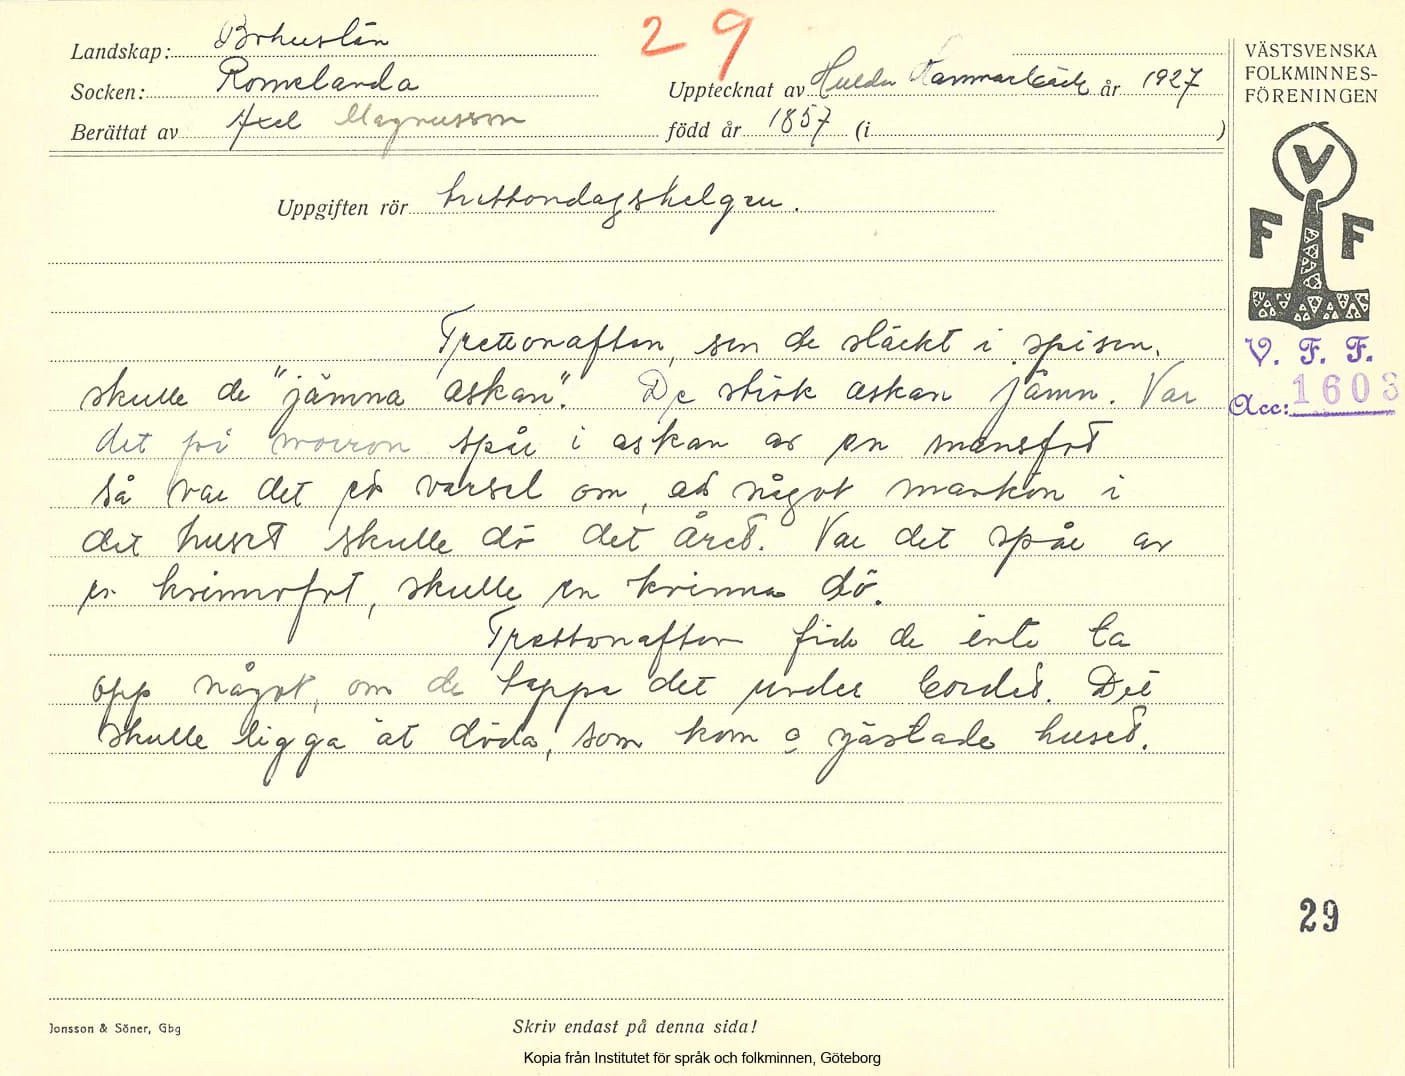 29
Landskap: Bohuslän
Socken: Romelanda
Upptecknat av Hulda Hammarbäck år 1927
Berättat av Axel Magnusson
född år 1857 (i )
Uppgiften rör trettondagshelgen.
Trettonafton, sen de släckt i spisen,
skulle de "jämna askan". De strök askan jämn. Var
det på morron spår i askan av en mansfot
så var det ett varsel om, att något mankön i
det huset skulle dö det året. Var det spår av
en kvinnofot, skulle en kvinna dö.
Trettonafton fick de inte ta
opp något, om de tappa det under bordet. Det
skulle ligga åt döda, som kom o gästade huset.
VÄSTSVENSKA
FOLKMINNES-
FÖRENINGEN
V
F F
V. F. F.
Acc: 1603
29
Jonsson & Söner, Gbg
Skriv endast på denna sida!
Kopia från Institutet för språk och folkminnen, Göteborg